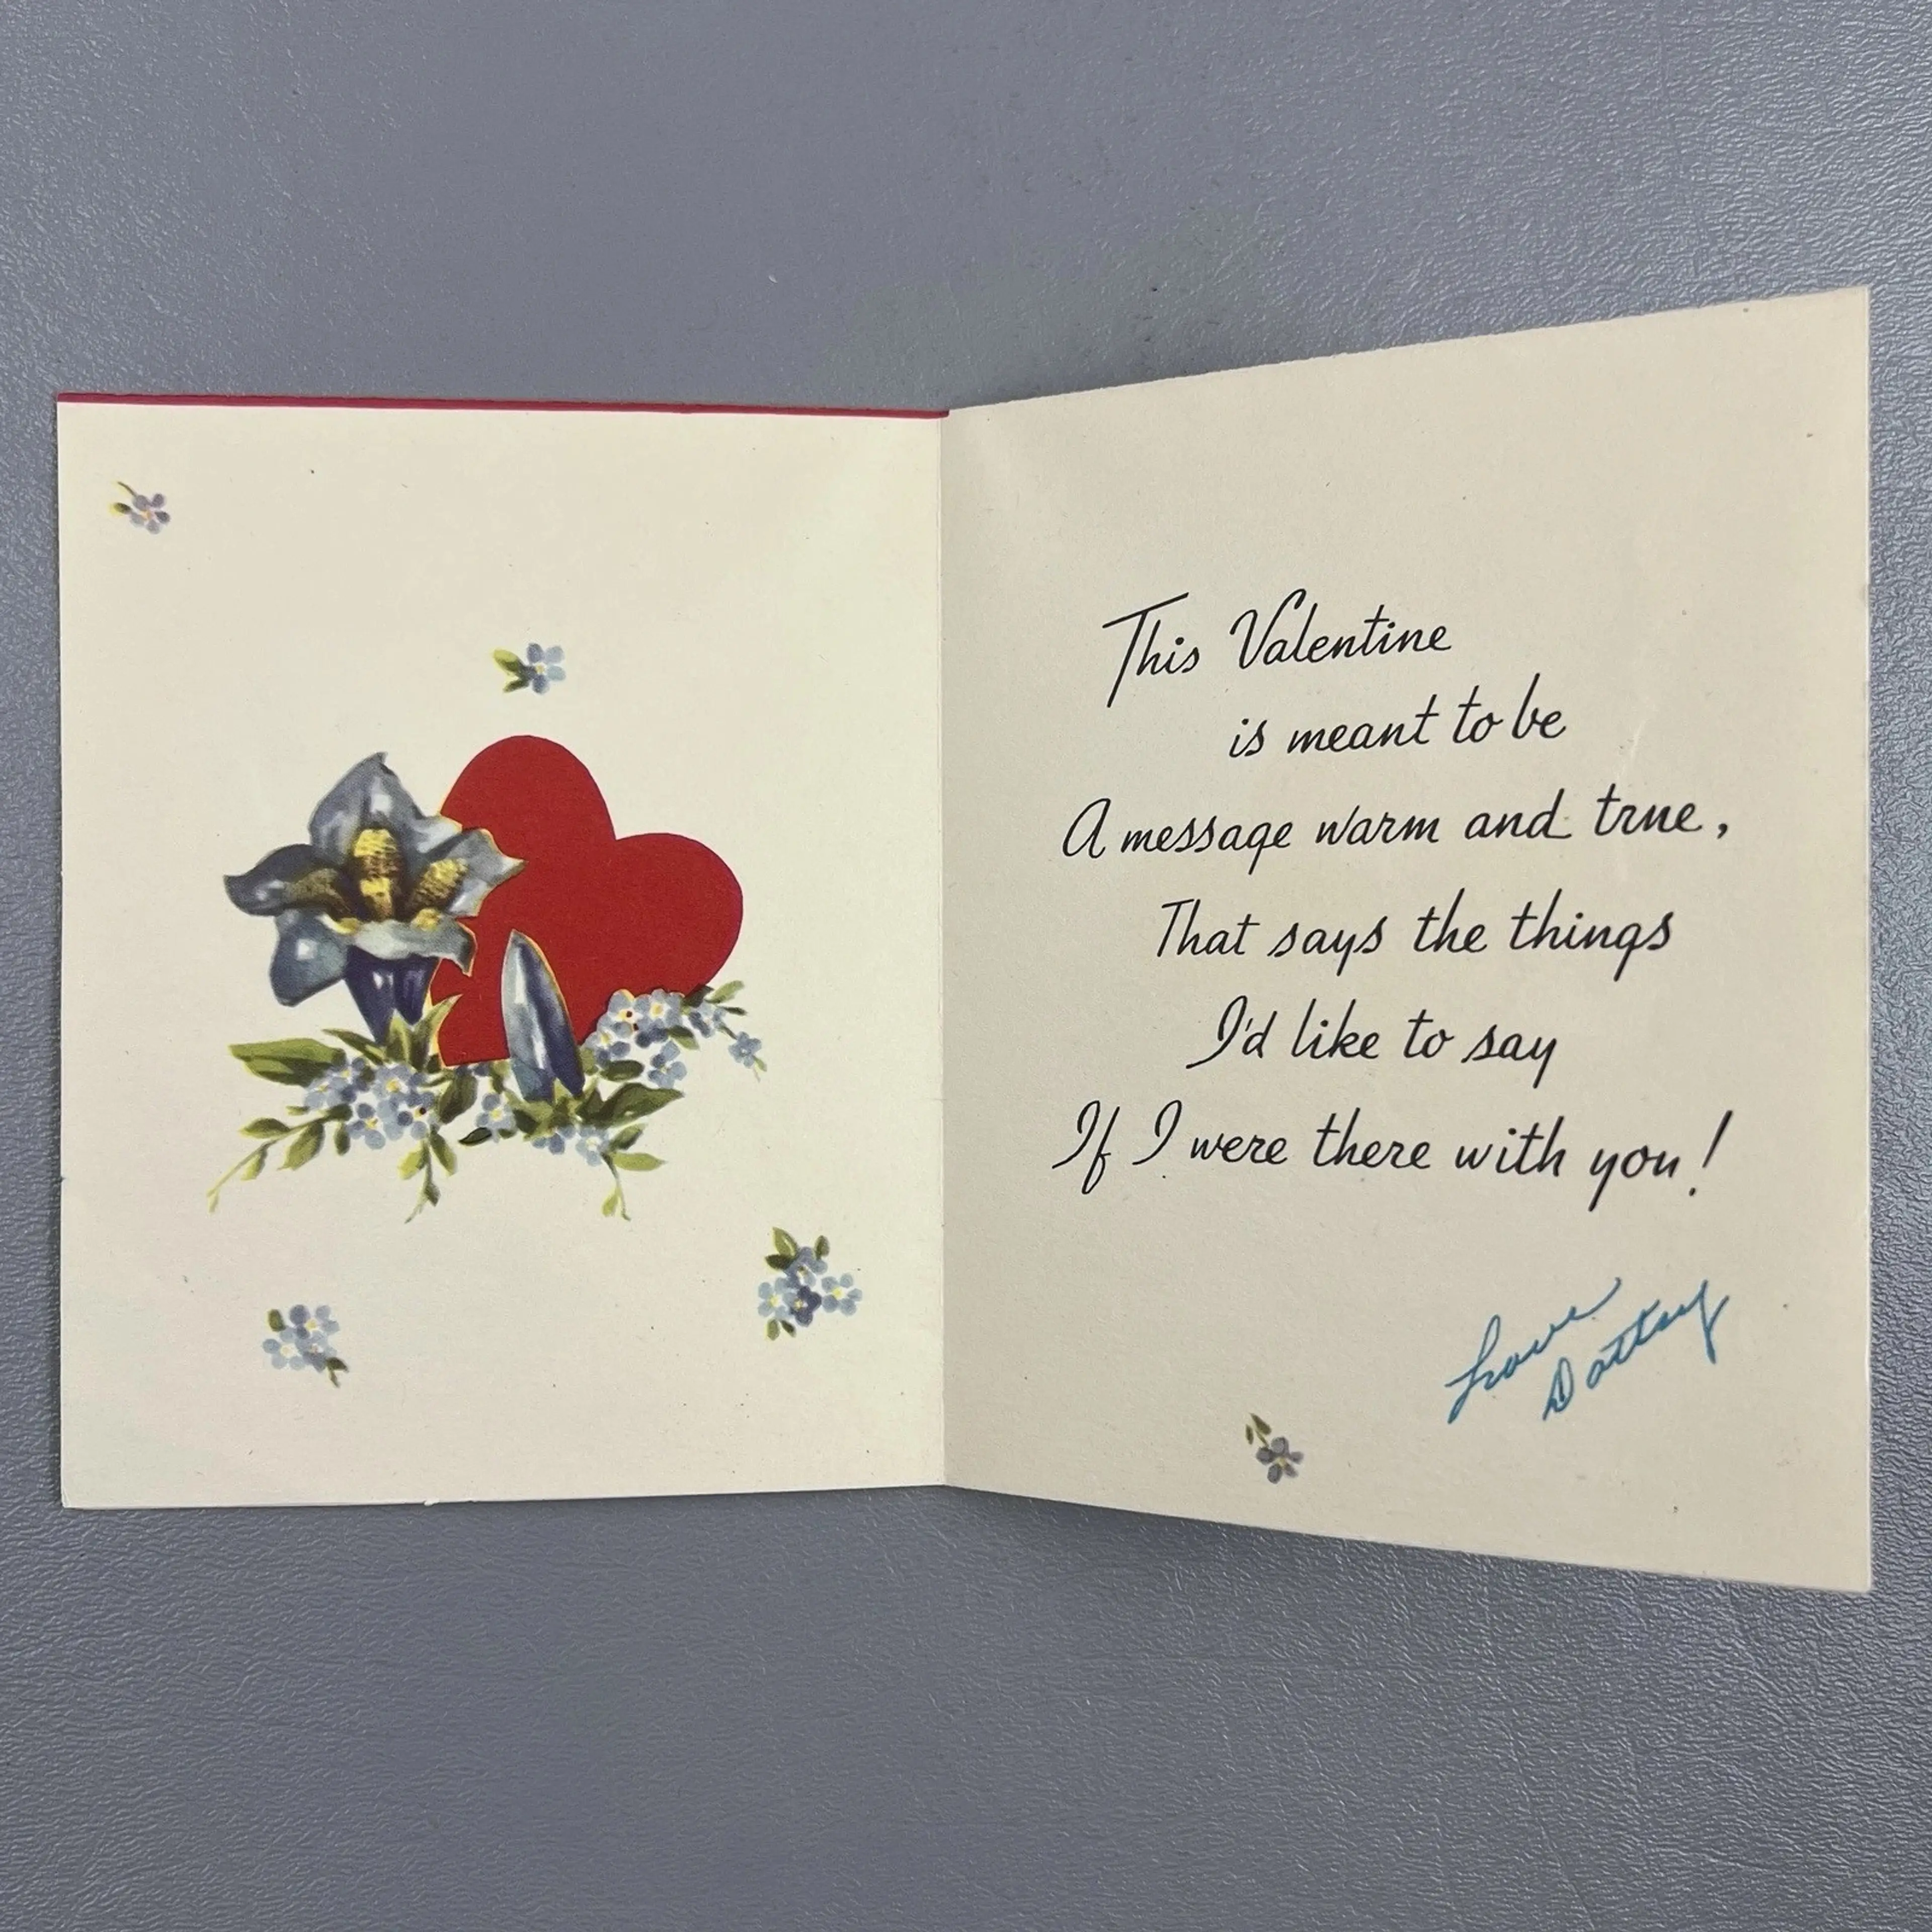 This Valentine
is meant to be
A message warm and true,
That says the things
I'd like to say
If I were there with you!
Love
Dottsy